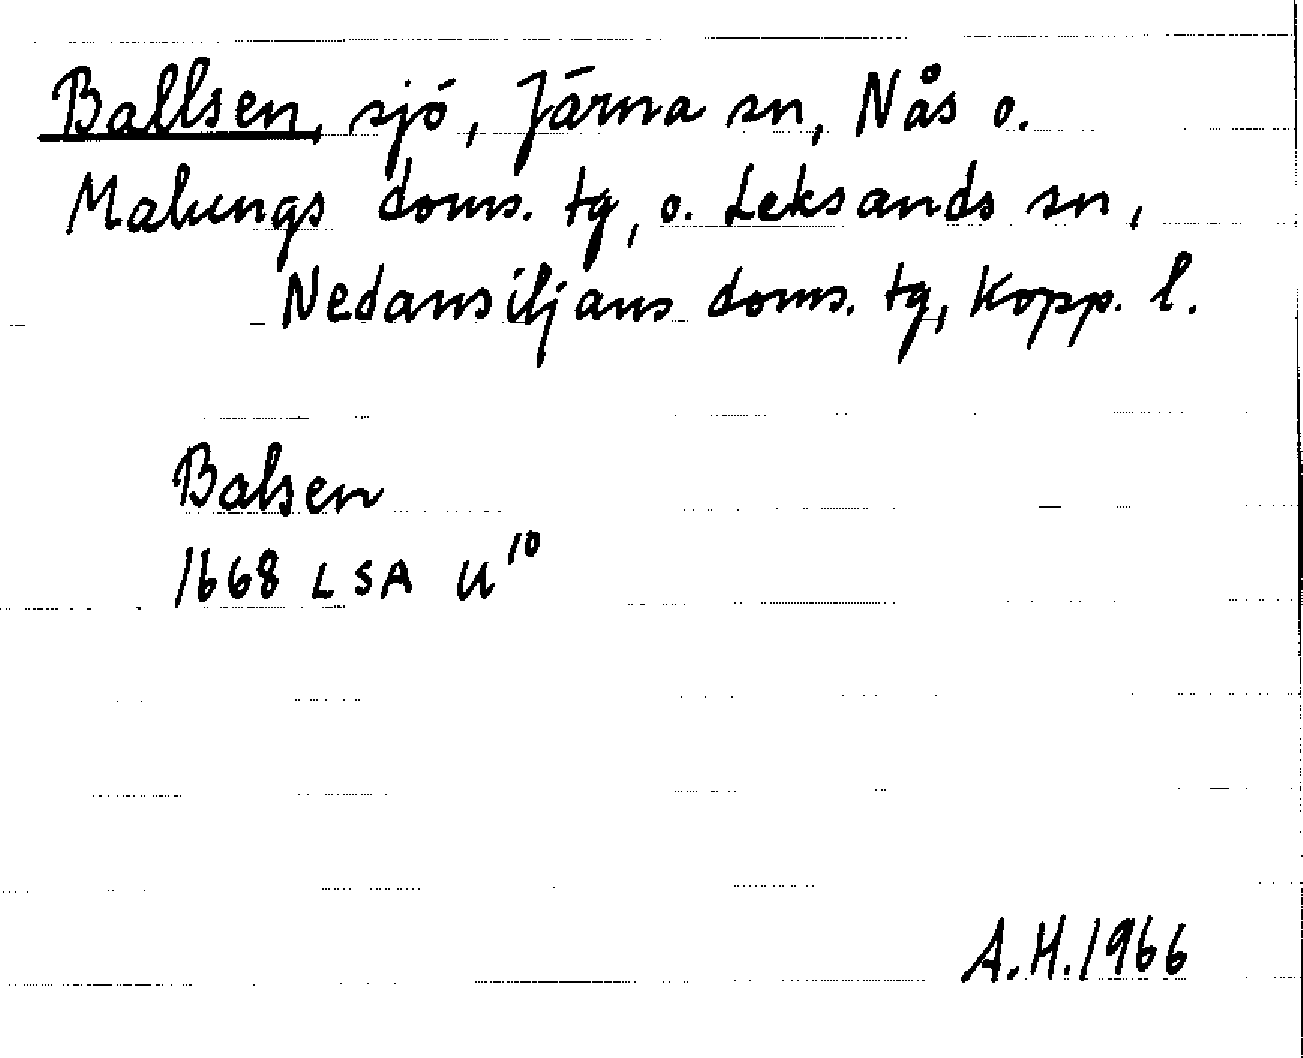 Ballsen, sjö, Järna sn, Nås o.
Malungs doms. tg, o. Leksands sn,
Nedansiljans doms. tg, Kopp. l.
Balsen
1668 LSA U¹⁰
A.H.1966